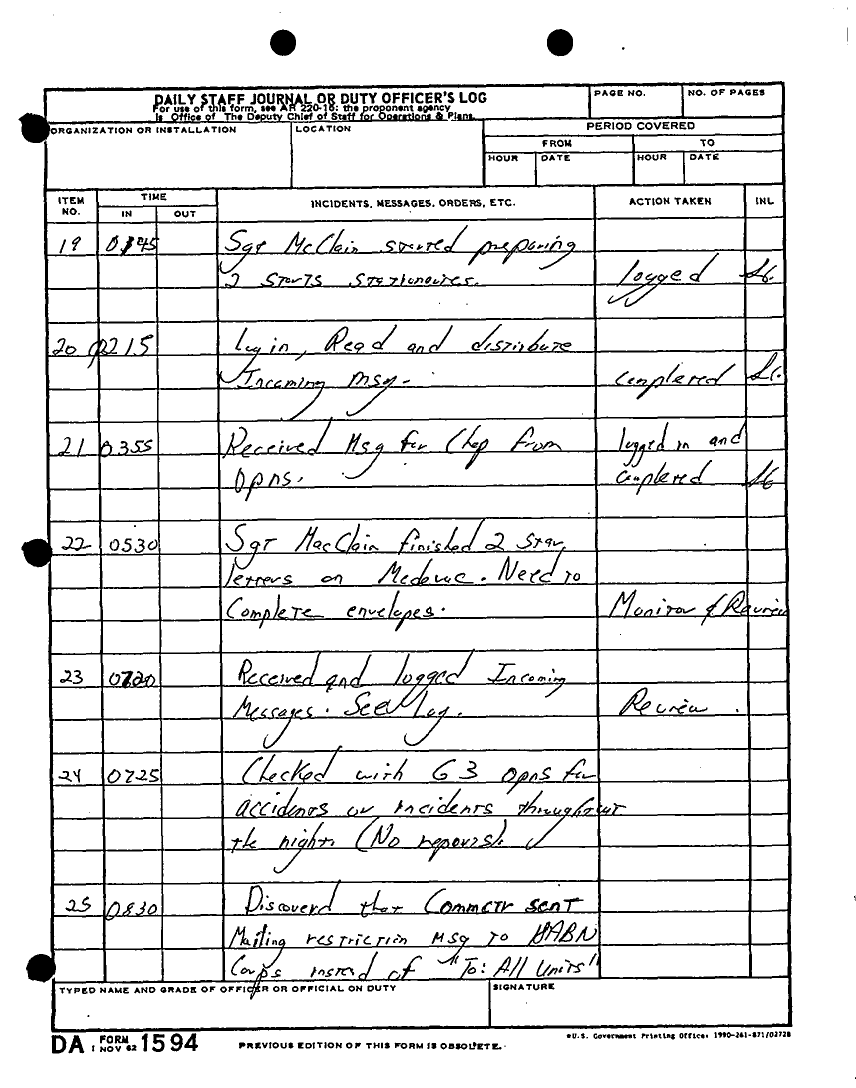 DAILY STAFF JOURNAL OR DUTY OFFICER'S LOG
For use of this form, see AR 220-15: the proponent agency
is Office of The Deputy Chief of Staff for Operations & Plans.
PAGE NO.
NO. OF PAGES
ORGANIZATION OR INSTALLATION
LOCATION
PERIOD COVERED
FROM
TO
HOUR
DATE
HOUR
DATE
ITEM NO.
TIME
IN
OUT
INCIDENTS, MESSAGES, ORDERS, ETC.
ACTION TAKEN
INL
19 0145 Sgt McClain started preparing
2 stars
logged
20 0215 Log in, Read and distribute
Incoming msg. completed
21 0355 Received Msg for Chop from logged in and
opns. completed
22 0530 Sgt MacClain finished 2 star
letters on Medevac. Need to
Complete envelopes. Monitor & Review
23 0720 Received and logged Incoming
Messages. See log. Review.
24 0725 Checked with G3 opns for
accidents or incidents throughout
the night. (No reports).
25 0830 Discoverd that Commctr sent
Mailing restriction msg to
Corps instead of "To: All Units"
TYPED NAME AND GRADE OF OFFICER OR OFFICIAL ON DUTY
SIGNATURE
DA FORM 1 NOV 62 1594
PREVIOUS EDITION OF THIS FORM IS OBSOLETE.
*U.S. Government Printing Office: 1990-261-871/02728